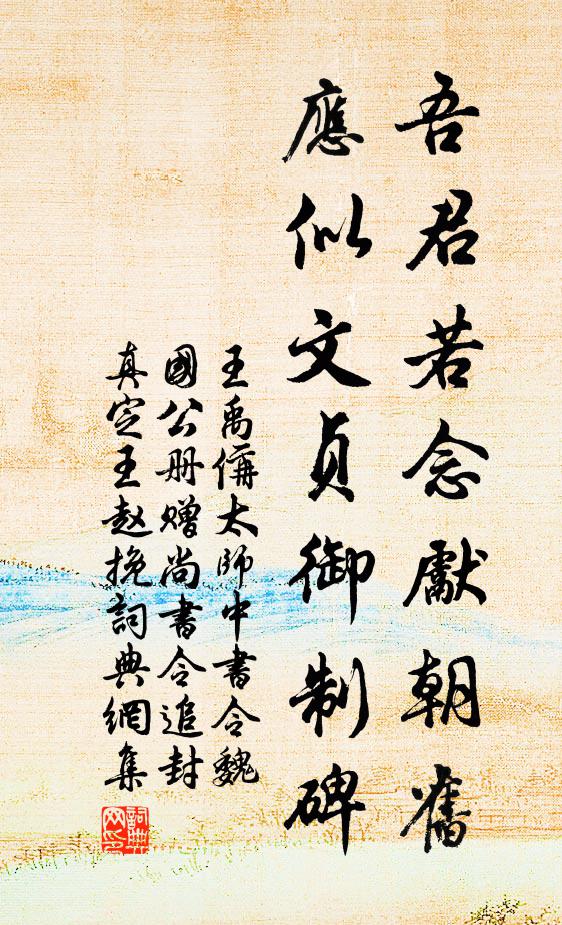 吾君若念獻朝舊
應似文貞御制碑
王禹偁太師中書令魏
國公册贈尚書令追封
真定王赵挽詞典網集
詞典
网印